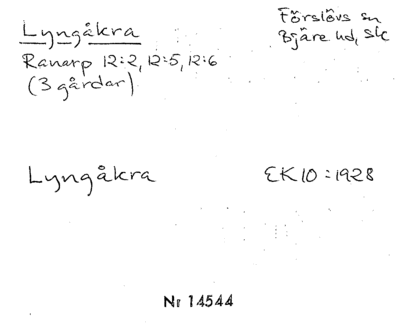 Lyngåkra
Förslövs sn
Ranarp 12:2, 12:5, 12:6
Bjäre hd, Sk
(3 gårdar)
Lyngåkra
EK10:1928
Nr 14544